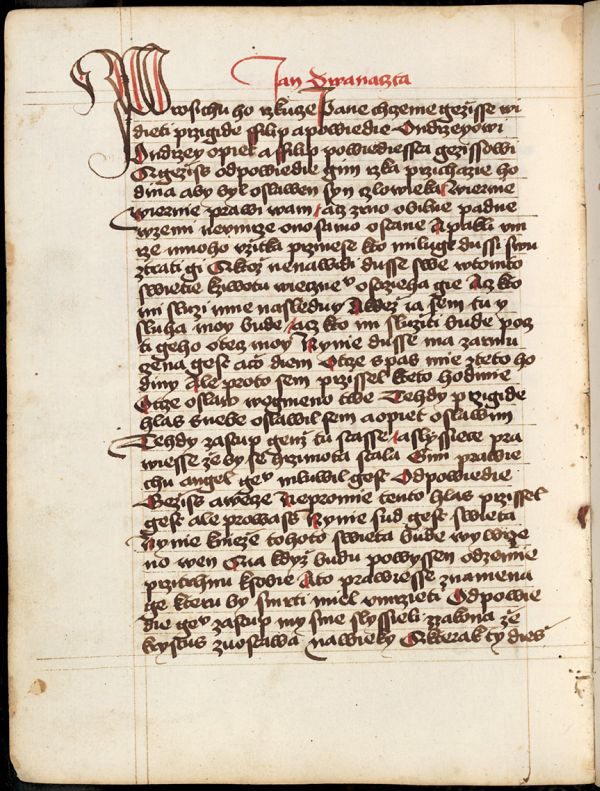 Jan Dwanaczta
Wrosichu ho rzkucze Pane chzeme gezisse wi
dieti przigide ffilip apowiedie Ondrzeyowi
Ondrzey opiet a ffilip powiediessta gezissowi
A geziss odpowiedie gim rzka przichazie ho
dina aby byl oslawen syn czlowieka wiernie
wiernie prawi wam acz zrno obilne padne
wzemi neumrze ono samo ostane A paklit um
rze mnoho vzitka przinese kto miluge dussi swu
ztrati gi A ktoz nenawidi dusse swe wtomto
swietie kziwotu wiecznemu ostrzieha gie Acz kto
mi sluzi mne nasleduy A kdez ia sem tu y
sluha moy bude acz kto mi sluziti bude pocz
ti geho otecz moy Nynie dusse ma zarmu
czena gest a czo diem Otcze spas mie z teto ho
diny Ale proto sem przissel k teto hodinie
Otcze oslaw wogmeno twe Tehdy przigide
hlas s nebe oslawil sem a opiet oslawim
Tehdy zastup genz tu stasse a slyssiece pra
wiesse zeby se hrzimota stala Gini prawie
chu angel gemu mluwil gest Odpowiedie
Geziss a wecze Ne promie tento hlas przissel
gest ale pro was Nynie sud gest swieta
Nynie knieze tohoto swieta bude wywrze
no wen A ia kdyz budu powyssen od zemie
przitrhnu k sobie A to prawiesse znamena
ge kteru by smrti miel umrzieti Odpowie
die gemu zastup my sme slyssieli z zakona ze
krystus zuostawa nawieky A kterak ty dies